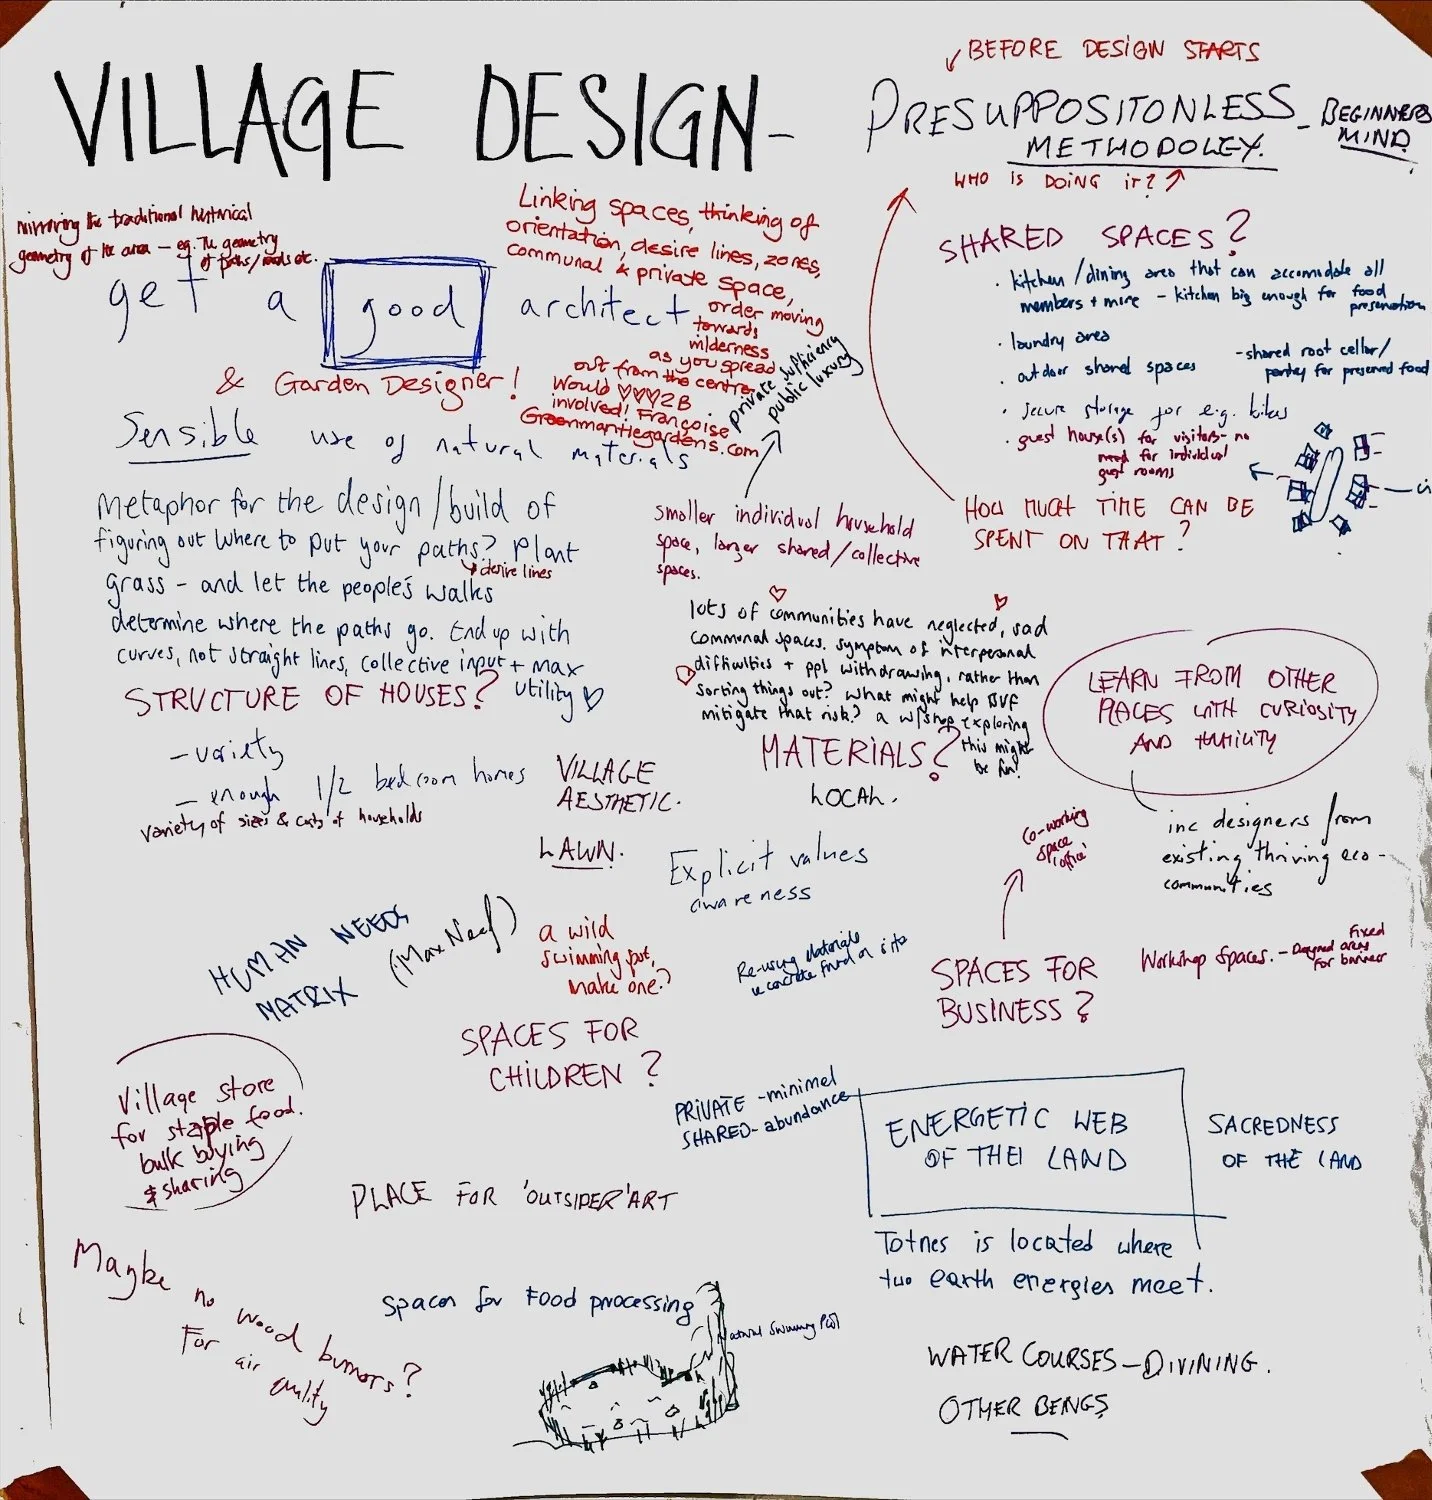 VILLAGE DESIGN-
↙BEFORE DESIGN STARTS
PRESUPPOSITONLESS - BEGINNERS
METHODOLGY. MIND
WHO IS DOING iT? ↗
mirroring the traditional historical
geometry of the area - eg. The geometry
of paths/roads etc.
get a good architect
& Garden Designer!
Linking spaces, thinking of
orientation, desire lines, zones,
communal & private space,
order moving
towards
wilderness
as you spread
out from the centre.
Would ♡♡♡ 2B
involved! Françoise
Greenmantlegardens.com
private sufficiency
public luxury
Sensible use of natural materials
Metaphor for the design/build of
figuring out where to put your paths? Plant
desire lines
grass - and let the people's walks
determine where the paths go. End up with
curves, not straight lines, collective input + max
utility ♡
STRUCTURE OF HOUSES?
- variety
- enough 1/2 bedroom homes
variety of sizes & costs of households
SHARED SPACES?
· kitchen/dining area that can accomodate all
members + more - kitchen big enough for food
preservation
· laundry area
· outdoor shared spaces
- shared root cellar/
pantry for preserved food
· secure storage for e.g. bikes
· guest house(s) for visitors - no
need for individual
guest rooms
HOW MUCH TIME CAN BE
SPENT ON THAT?
smaller individual household
space, larger shared/collective
spaces.
lots of communities have neglected, sad
communal spaces. symptom of interpersonal
difficulties + ppl withdrawing, rather than
sorting things out? What might help BVF
mitigate that risk? a w/shop exploring
this might
be fun!
LEARN FROM OTHER
PLACES WITH CURIOSITY
AND HUMILITY
inc designers from
existing thriving eco-
communities
MATERIALS?
LOCAL.
VILLAGE
AESTHETIC.
LAWN.
Explicit values
awareness
Co-working
space
HUMAN NEEDS
MATRIX (Max Neef)
a wild
swimming spot,
make one?
Re-using Materials
ie concrete found on site
SPACES FOR
BUSINESS?
Workshop spaces. - Designed areas
Fixed
for
SPACES FOR
CHILDREN?
Village store
for staple food.
bulk buying
& sharing
PRIVATE - minimal
SHARED - abundance
ENERGETIC WEB
OF THE LAND
SACREDNESS
OF THE LAND
PLACE FOR 'OUTSIDER' ART
Totnes is located where
two earth energies meet.
Maybe no wood burners?
For air quality
Spaces for Food processing
Natural Swimming Pool
WATER COURSES - DIVINING.
OTHER BEINGS